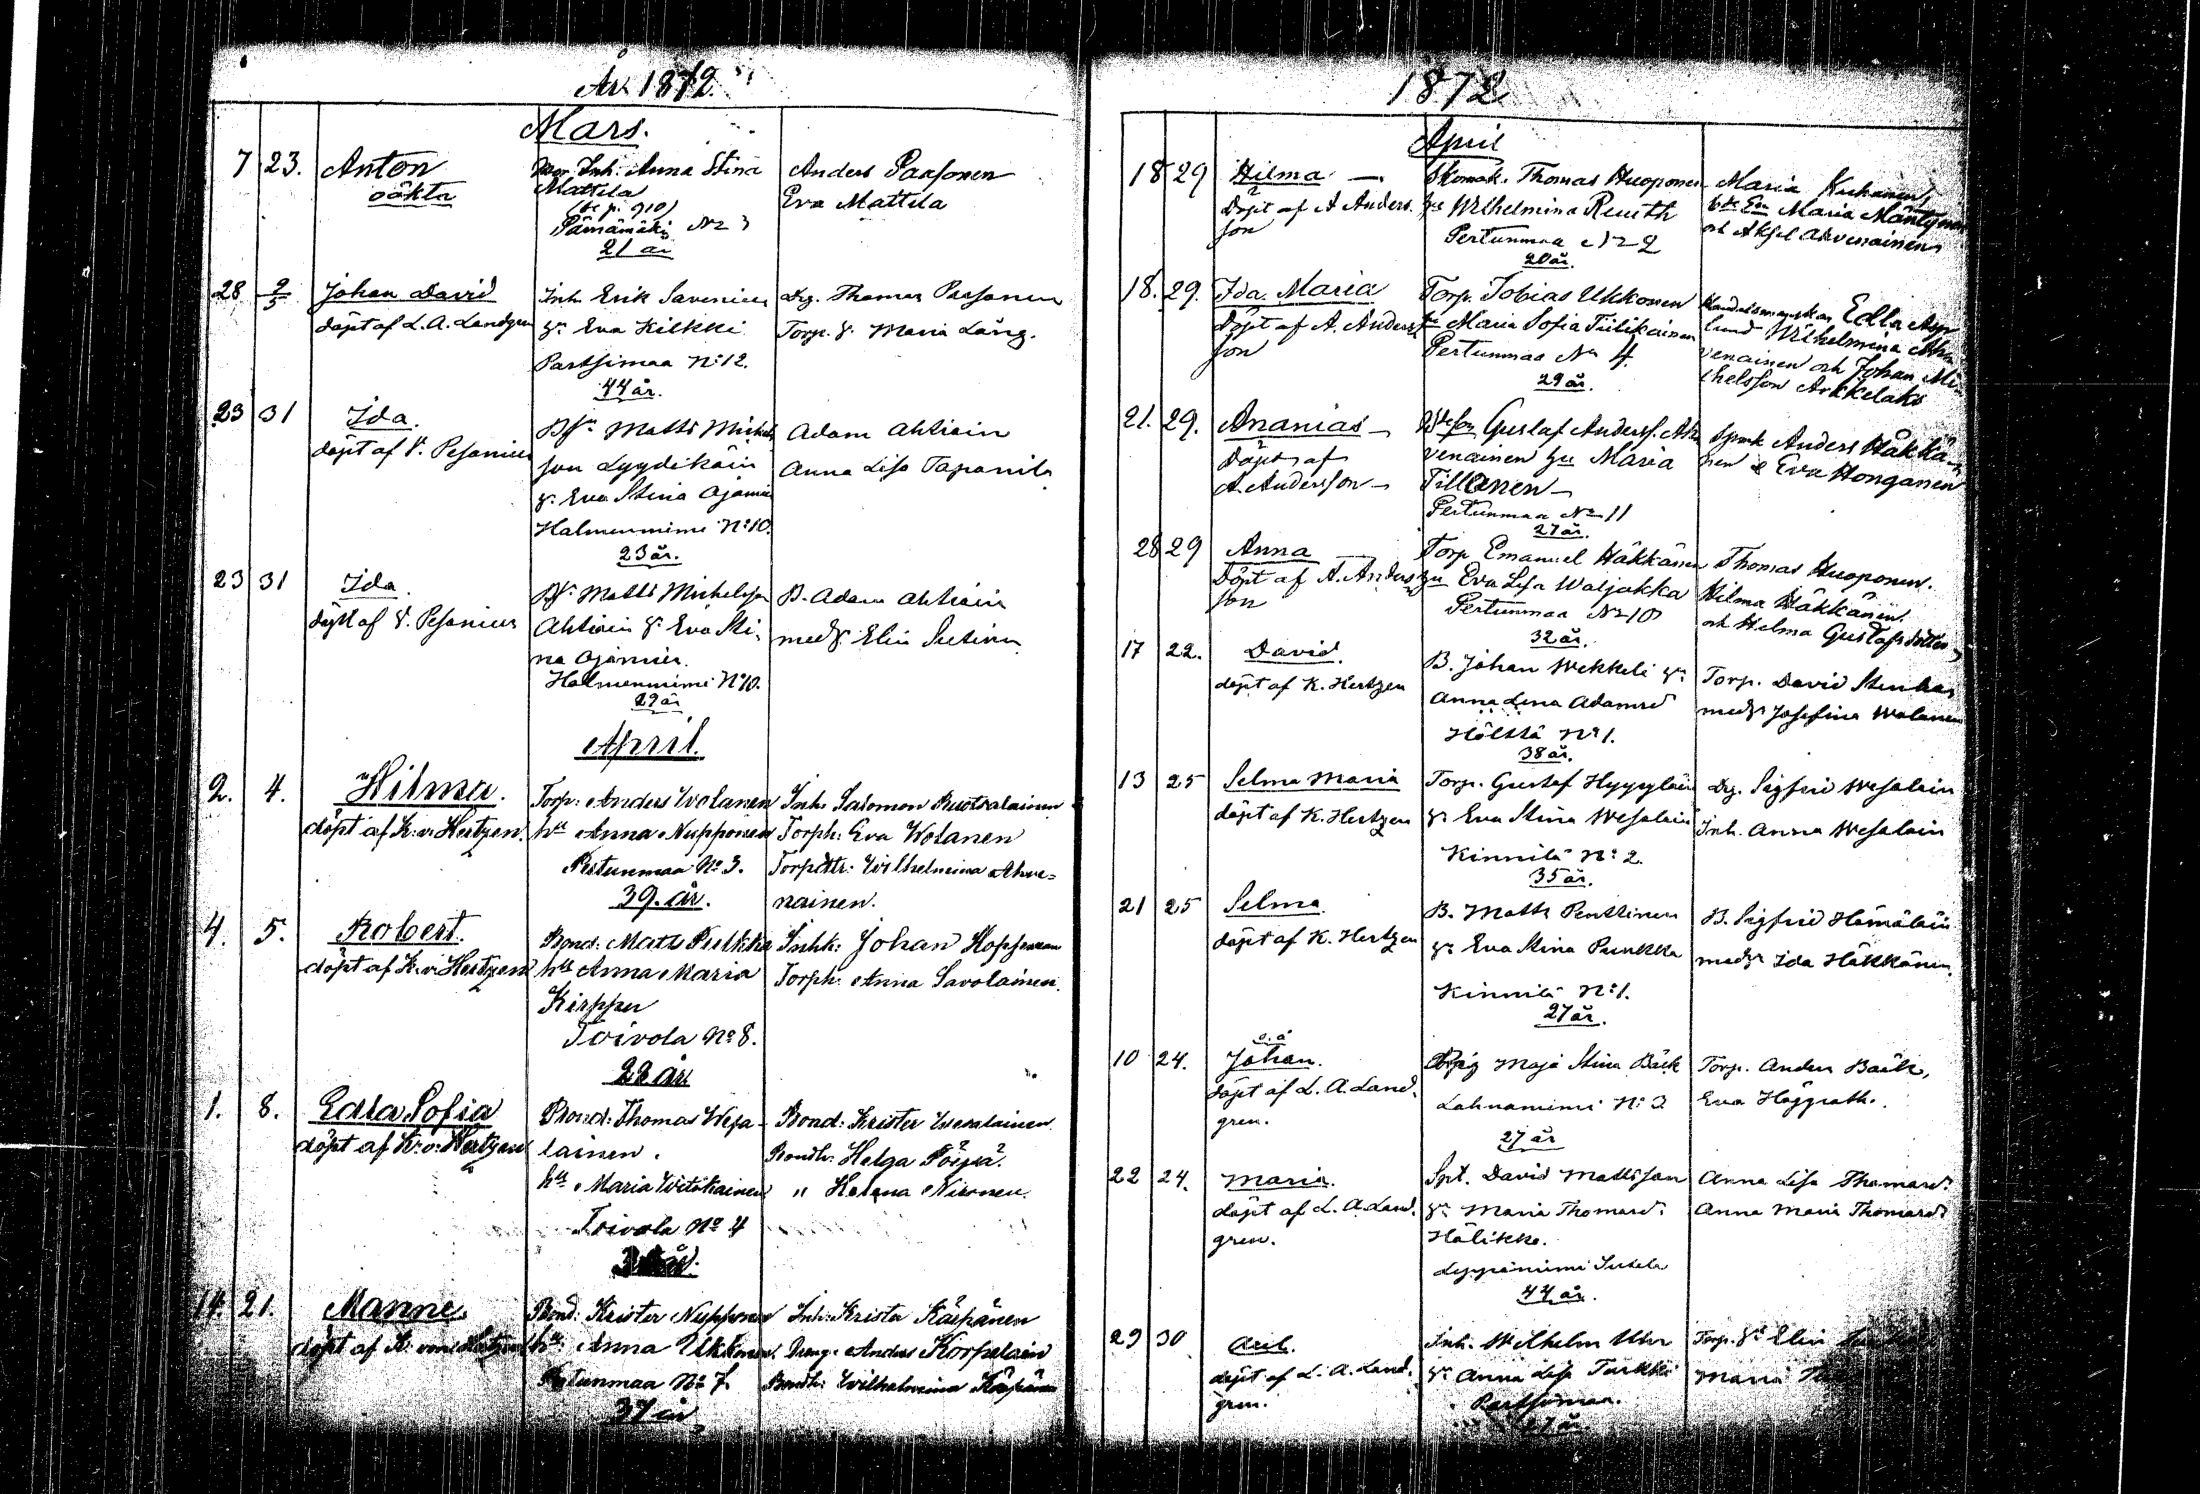 År 1872.
Mars.
7 23. Anton
oäkta
Mor Inh. Anna Stina
Mattila
21 år
Anders Paasonen
Eva Mattila
28 9/5 Johan David
döpt af L. A. Landgren
Inh. Erik Savenius
hu Eva Kilkki
Partsimaa No 12.
44 år.
Drg. Thomas Paasonen
Torp. h. Maria Läng.
23 31 Ida.
döpt af P. Pesonius
Matts Michels
son Lyydikäin
hu Eva Stina
Halmenniemi No 10.
23 år.
Adam Ahtiain
Anna Lisa Tapanila
23 31 Ida.
döpt af P. Pesonius
Matts Michelsson
Ahtiain hu Eva Sti-
na
Halmenniemi No 10.
22 år
B. Adam Ahtiain
med h Elin
April.
2. 4. Hilma.
döpt af K. v. Hertzen.
Torp: Anders Wolanen
hu Anna Nupponen
Pertunmaa No 3.
39. år.
Inh: Salomon Ruotsalainen
Torph: Eva Wolanen
Torpdtr: Wilhelmina Ahve-
nainen.
4. 5. Robert.
döpt af K. v. Hertzen
Bond: Matts Pulkka
hu Anna Maria
Kirppu
Toivola No 8.
22 år
Inhk: Johan
Torph: Anna Savolainen.
1. 8. Edla Sofia
döpt af K. v. Hertzen
Bond: Thomas Wesa-
lainen.
hu Maria
Toivola No 4
Bond: Krister Wesalainen
Bondh: Helga Pöypä?
" Helena Nironen.
14. 21. Manne.
döpt af K. von Hertzen
Bond: Krister Nupponen
hu: Anna Ukkonen.
Pertunmaa No 7.
37 år
Inh: Krister Käspänen
Dreng: Anders Korpelain
Bondh: Wilhelmina
1872
April
18 29 Hilma —
Döpt af A Anders-
son
Skomak. Thomas Huoponen
hu Wilhelmina Reuth
Pertunmaa No 2
20 år.
Maria Kuhanen,
Maria Mäntynen
och Aksel Ahvenainen
18. 29. Ida Maria
Döpt af A. Anders-
son
Torp. Tobias Ukkonen
hu Maria Sofia Tiilikainen
Pertunmaa No 4.
29 år.
Edla
lund Wilhelmina Ah-
venainen och Johan Mi-
chelsson Arkkelaks
21. 29. Ananias —
Döpt af
A. Andersson —
Gustaf Anderss. Ah-
venainen hu Maria
Tillanen —
Pertunmaa No 11
27 år.
Anders Häkkä-
nen & Eva Honganen
28 29 Anna
Döpt af A. Anders-
son
Torp Emanuel Häkkänen
hu Eva Lisa Waljakka
Pertunmaa No 10
32 år.
Thomas Huoponen.
Hilma Häkkänen.
och Helma Gustafsdotter
17 22. David.
döpt af K. Hertzen
B. Johan Wekkeli hu
Anna Lena Adamsd
Hölttä No 1.
38 år.
Torp. David
med h Josefina Wolanen
13 25 Selma Maria
döpt af K. Hertzen
Torp. Gustaf Hyyryläin
hu Eva Stina Wesalain
Kinnilä No 2.
35 år.
Drg. Sigfrid Wesalain
Inh. Anna Wesalain
21 25 Selma.
döpt af K. Hertzen
B. Matts Penttinen
hu Eva Stina Punkka
Kinnilä No 1.
27 år.
B. Sigfrid Hämäläin
med h Ida Häkkänen.
10 24. o. ä
Johan.
döpt af L. A. Land-
gren.
Maja Stina Bäck
Lahnaniemi No 3.
27 år
Torp. Anders Bäck,
Eva
22 24. Maria.
döpt af L. A. Land-
gren.
Spt. David Mattsson
hu Maria Thomasd.
Hälikkö.
44 år.
Anna Lisa Thomasd.
Anna Maria Thomasd.
29 30
döpt af L. A. Land-
gren.
Inh. Wilhelm
hu Anna Lisa Turkki
Partsimaa.
27 år.
Torp. hu Elin
Maria